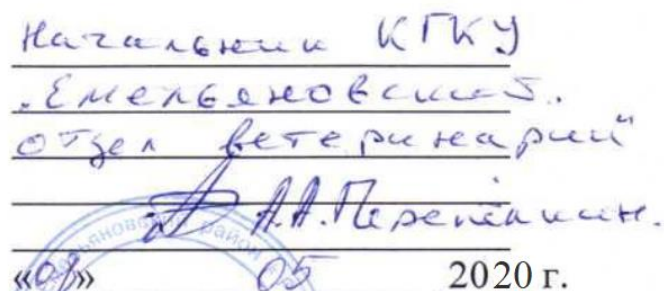 Начальник КГКУ
„Емельяновский
отдел ветеринарии"
А.А.
район
« » 05 2020 г.